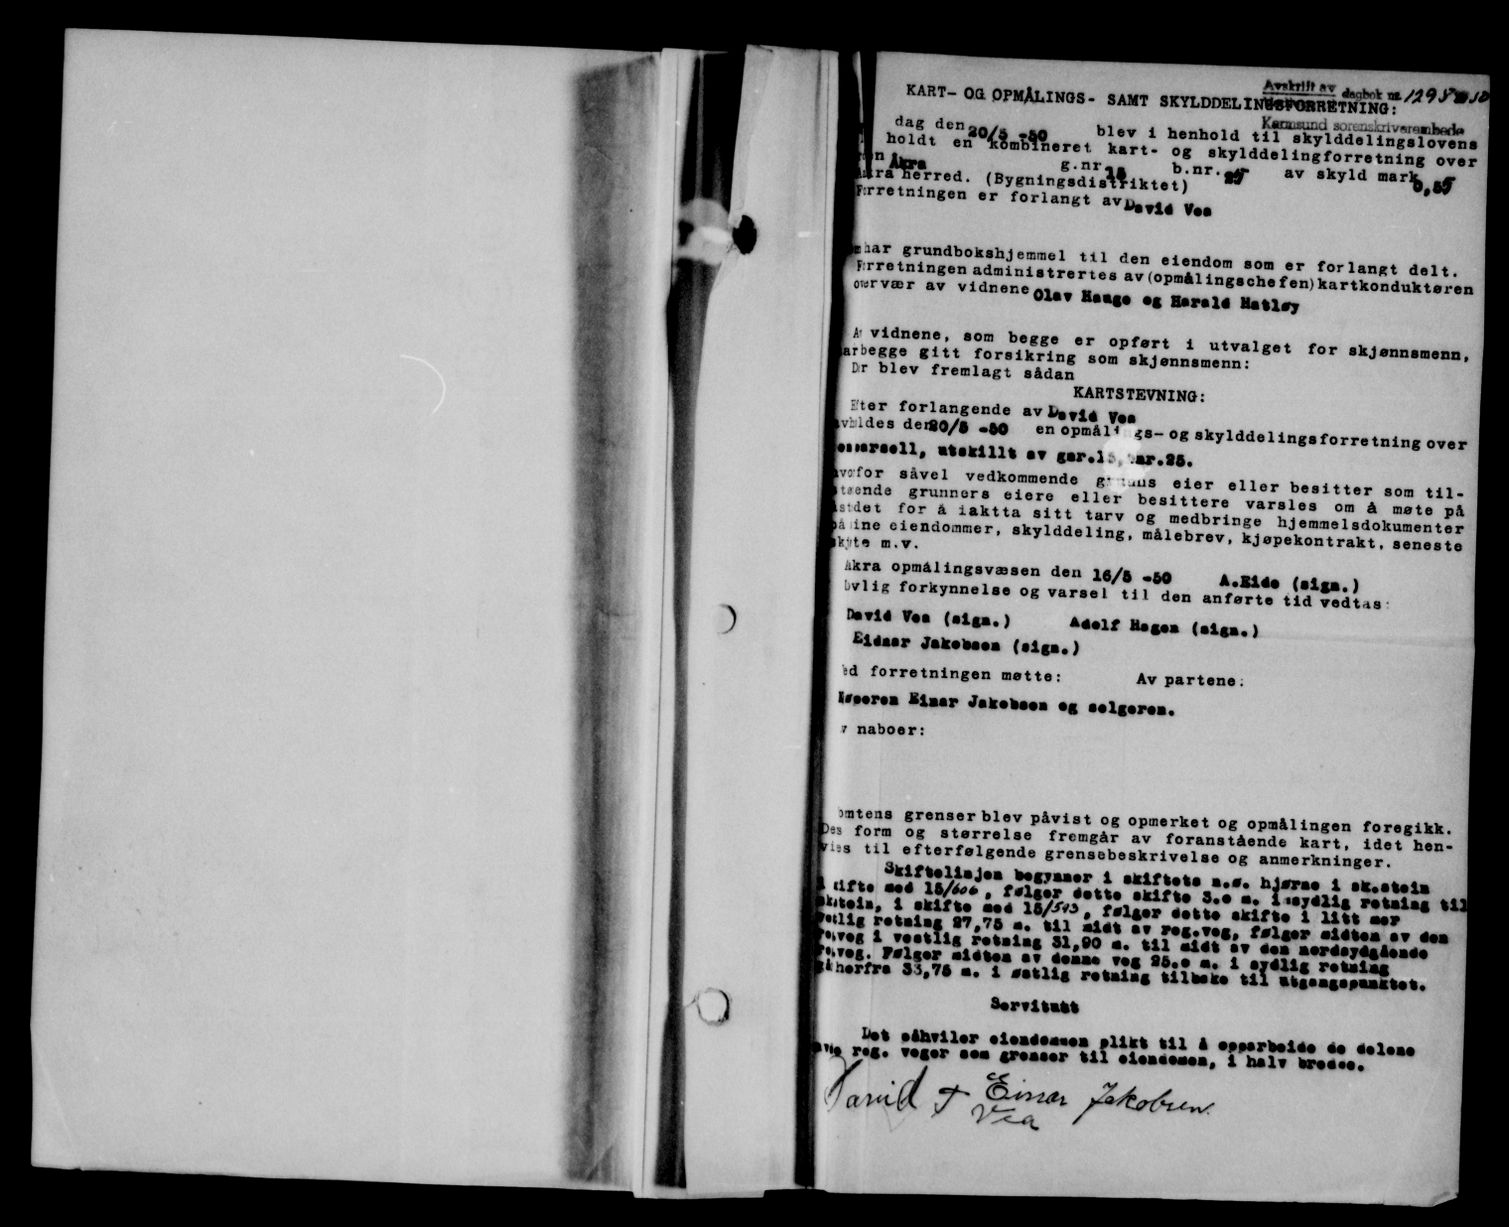 Avskrift av dagbok nr. 1295 50
KART- OG OPMÅLINGS- SAMT SKYLDDELINGSFORRETNING:
Karmsund sorenskriverembede
dag den 20/5 -50 blev i henhold til skylddelingslovens
holdt en kombineret kart- og skylddelingforretning over
Åkra g.nr. 15 b.nr. 25 av skyld mark 0,55
herred. (Bygningsdistriktet)
Forretningen er forlangt av David Vea
har grundbokshjemmel til den eiendom som er forlangt delt.
Forretningen administrertes av (opmålingschefen) kartkonduktøren
overvær av vidnene Olav Hauge og Harald Hatløy
Av vidnene, som begge er opført i utvalget for skjønnsmenn,
har begge gitt forsikring som skjønnsmenn:
Der blev fremlagt sådan
KARTSTEVNING:
Efter forlangende av David Vea
avholdes den 20/5 -50 en opmålings- og skylddelingsforretning over
parsell, utskillt av gnr.15, bnr.25.
hvorfor såvel vedkommende grunns eier eller besitter som til-
støtende grunners eiere eller besittere varsles om å møte på
stedet for å iaktta sitt tarv og medbringe hjemmelsdokumenter
på sine eiendommer, skylddeling, målebrev, kjøpekontrakt, seneste
skjøte m.v.
Åkra opmålingsvæsen den 16/5 -50 A.Eide (sign.)
Lovlig forkynnelse og varsel til den anførte tid vedtas:
David Vea (sign.) Adolf Hagen (sign.)
Eidnar Jakobsen (sign.)
Ved forretningen møtte: Av partene:
Kjøperen Einar Jakobsen og selgeren.
Av naboer:
Tomtens grenser blev påvist og opmerket og opmålingen foregikk.
Des form og størrelse fremgår av foranstående kart, idet hen-
vises til efterfølgende grensebeskrivelse og anmerkninger.
Skiftelinjen begynner i skiftets n.ø. hjørne i sk.stein
i skifte med 15/606, følger dette skifte 3.0 m. i sydlig retning til
sk.stein, i skifte med 15/593, følger dette skifte i litt mer
vestlig retning 27,75 m. til midt av reg.veg, følger midten av den
reg.veg i vestlig retning 31,90 m. til midt av den nordsydgående
reg.veg. Følger midten av denne veg 25.0 m. i sydlig retning
går herfra 33,75 m. i østlig retning tilbake til utgangspunktet.
Servitutt
Det påhviler eiendommen plikt til å opparbeide de delene
av de reg. veger som grenser til eiendomen, i halv bredde.
David T Vea
Einar Jakobsen.